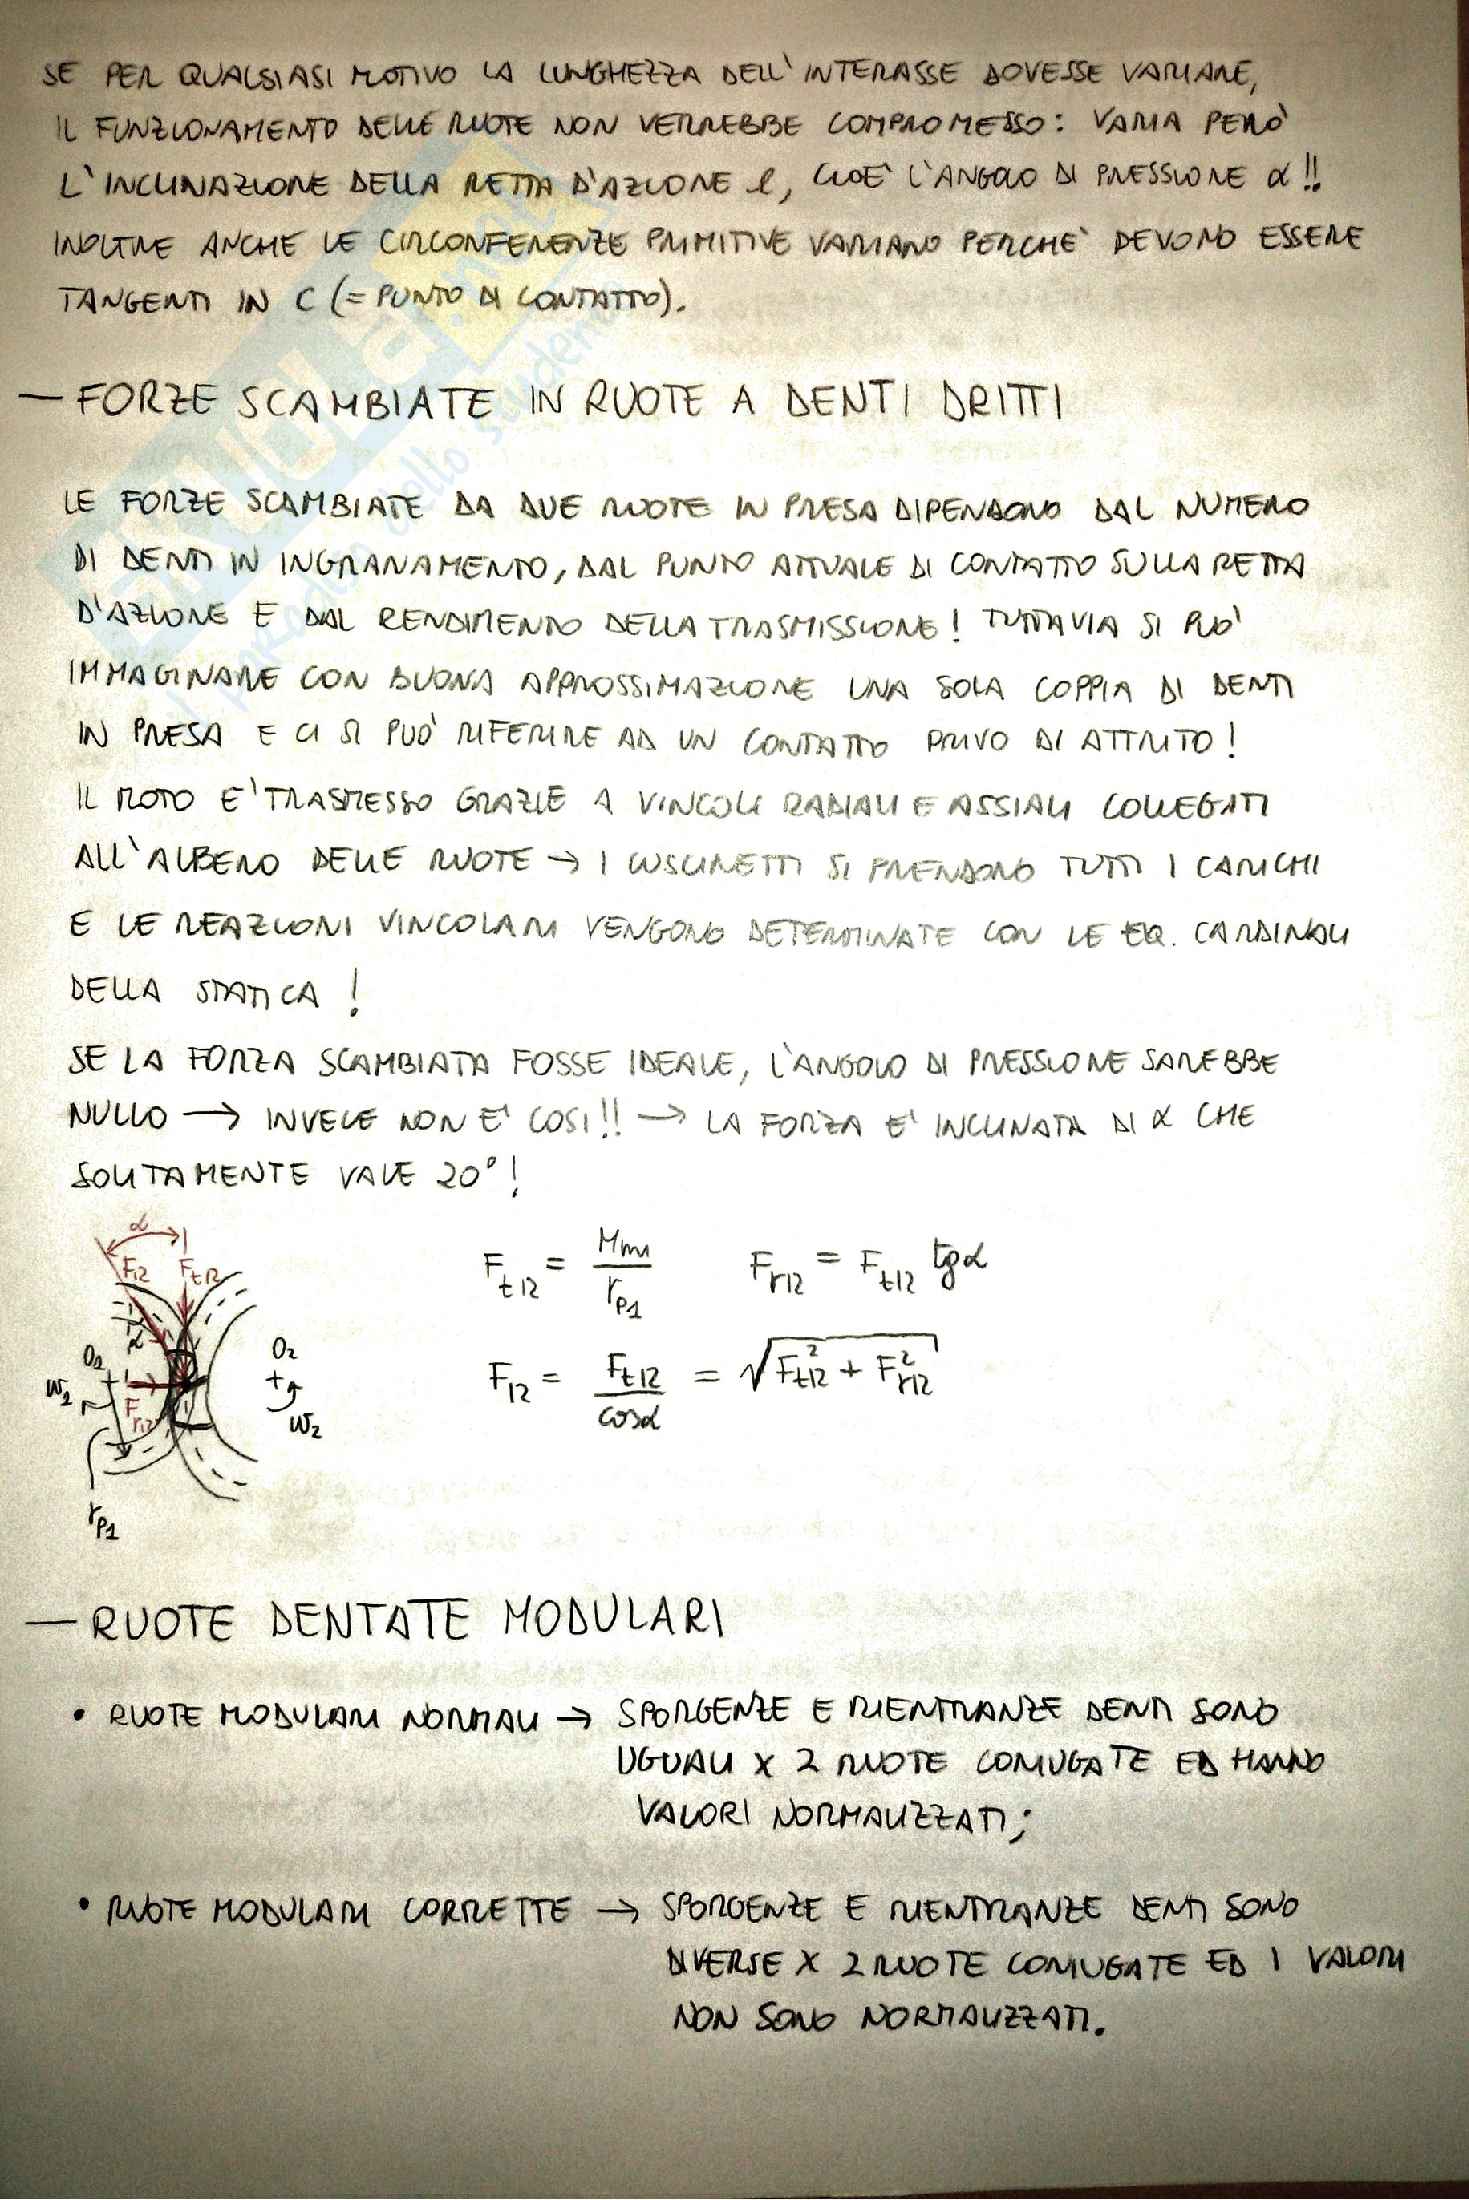 SE PER QUALSIASI MOTIVO LA LUNGHEZZA DELL'INTERASSE DOVESSE VARIARE,
IL FUNZIONAMENTO DELLE RUOTE NON VERREBBE COMPROMESSO: VARIA PERÒ
L'INCLINAZIONE DELLA RETTA D'AZIONE l, CIOÈ L'ANGOLO DI PRESSIONE α!!
INOLTRE ANCHE LE CIRCONFERENZE PRIMITIVE VARIANO PERCHÈ DEVONO ESSERE
TANGENTI IN C (= PUNTO DI CONTATTO).
— FORZE SCAMBIATE IN RUOTE A DENTI DRITTI
LE FORZE SCAMBIATE DA DUE RUOTE IN PRESA DIPENDONO DAL NUMERO
DI DENTI IN INGRANAMENTO, DAL PUNTO ATTUALE DI CONTATTO SULLA RETTA
D'AZIONE E DAL RENDIMENTO DELLA TRASMISSIONE! TUTTAVIA SI PUÒ
IMMAGINARE CON BUONA APPROSSIMAZIONE UNA SOLA COPPIA DI DENTI
IN PRESA E CI SI PUÒ RIFERIRE AD UN CONTATTO PRIVO DI ATTRITO!
IL MOTO È TRASMESSO GRAZIE A VINCOLI RADIALI E ASSIALI COLLEGATI
ALL'ALBERO DELLE RUOTE → I CUSCINETTI SI PRENDONO TUTTI I CARICHI
E LE REAZIONI VINCOLARI VENGONO DETERMINATE CON LE EQ. CARDINALI
DELLA STATICA!
SE LA FORZA SCAMBIATA FOSSE IDEALE, L'ANGOLO DI PRESSIONE SAREBBE
NULLO → INVECE NON È COSÌ!! → LA FORZA È INCLINATA DI α CHE
SOLITAMENTE VALE 20°!
α
F12 Ft12
α
O2
ω2
Fr12
rp1
O2
ω2
Ft12 = Mm1 / rp1 Fr12 = Ft12 tgα
F12 = Ft12 / cosα = √(Ft12² + Fr12²)
— RUOTE DENTATE MODULARI
• RUOTE MODULARI NORMALI → SPORGENZE E RIENTRANZE DENTI SONO
UGUALI X 2 RUOTE CONIUGATE ED HANNO
VALORI NORMALIZZATI;
• RUOTE MODULARI CORRETTE → SPORGENZE E RIENTRANZE DENTI SONO
DIVERSE X 2 RUOTE CONIUGATE ED I VALORI
NON SONO NORMALIZZATI.